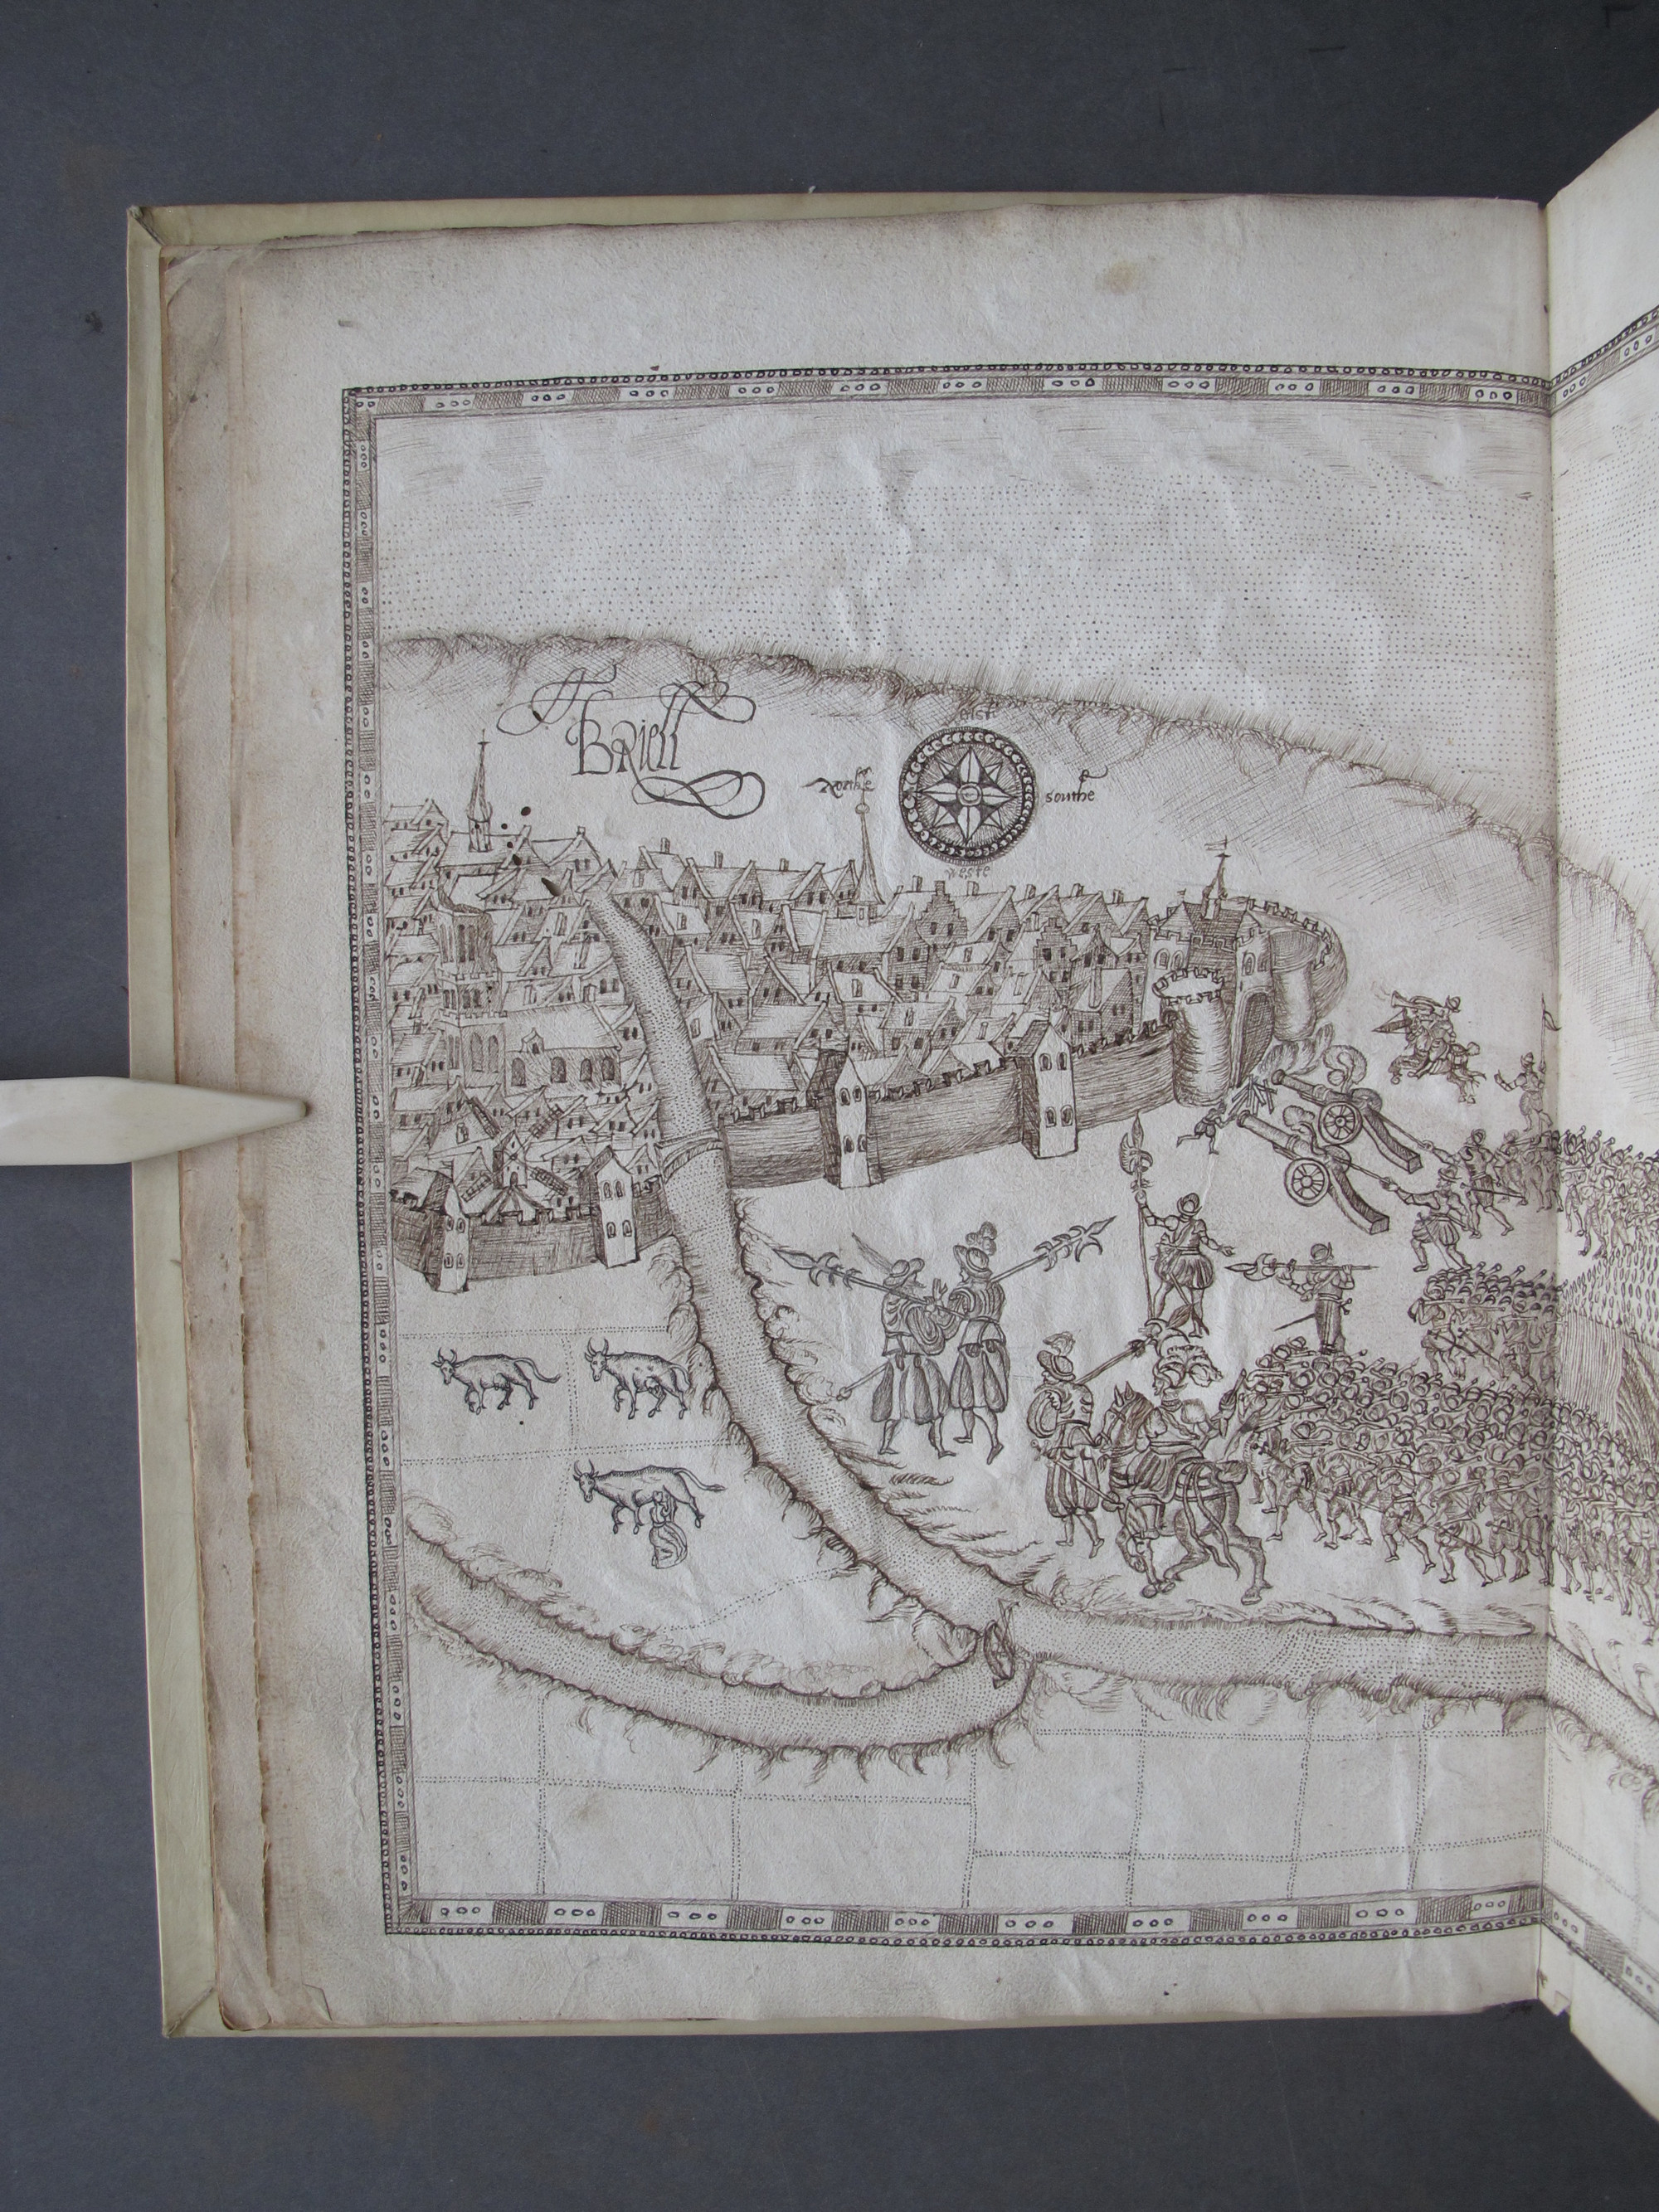 Briell
este
northe
southe
weste